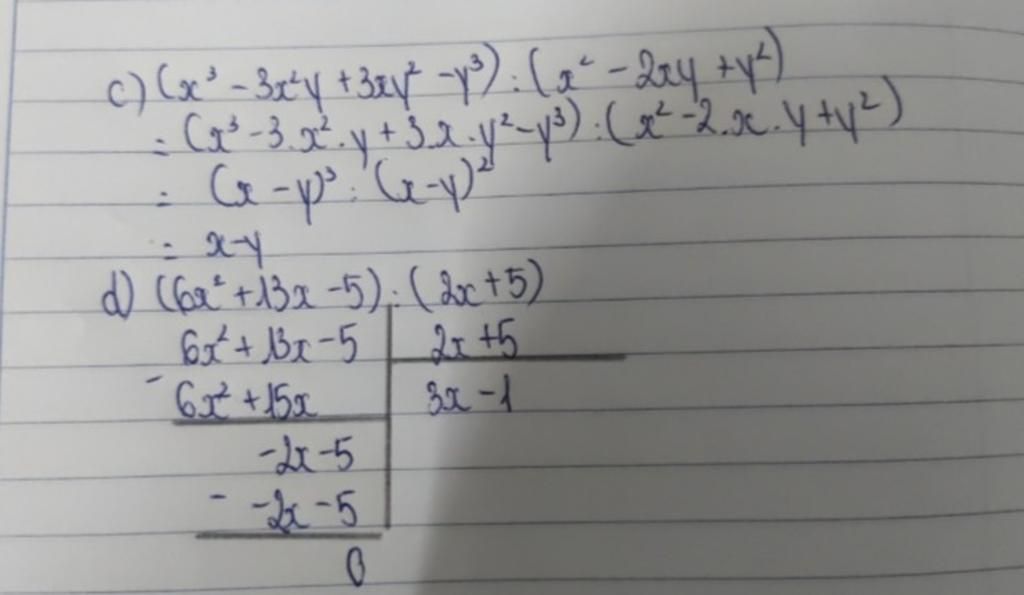 c) (x³ - 3x²y + 3xy² - y³) : (x² - 2xy + y²)
= (x³ - 3.x².y + 3.x.y² - y³) : (x² - 2.x.y + y²)
= (x - y)³ : (x - y)²
= x - y
d) (6x² + 13x - 5) : (2x + 5)
6x² + 13x - 5 2x + 5
- 6x² + 15x 3x - 1
-2x - 5
- -2x - 5
0